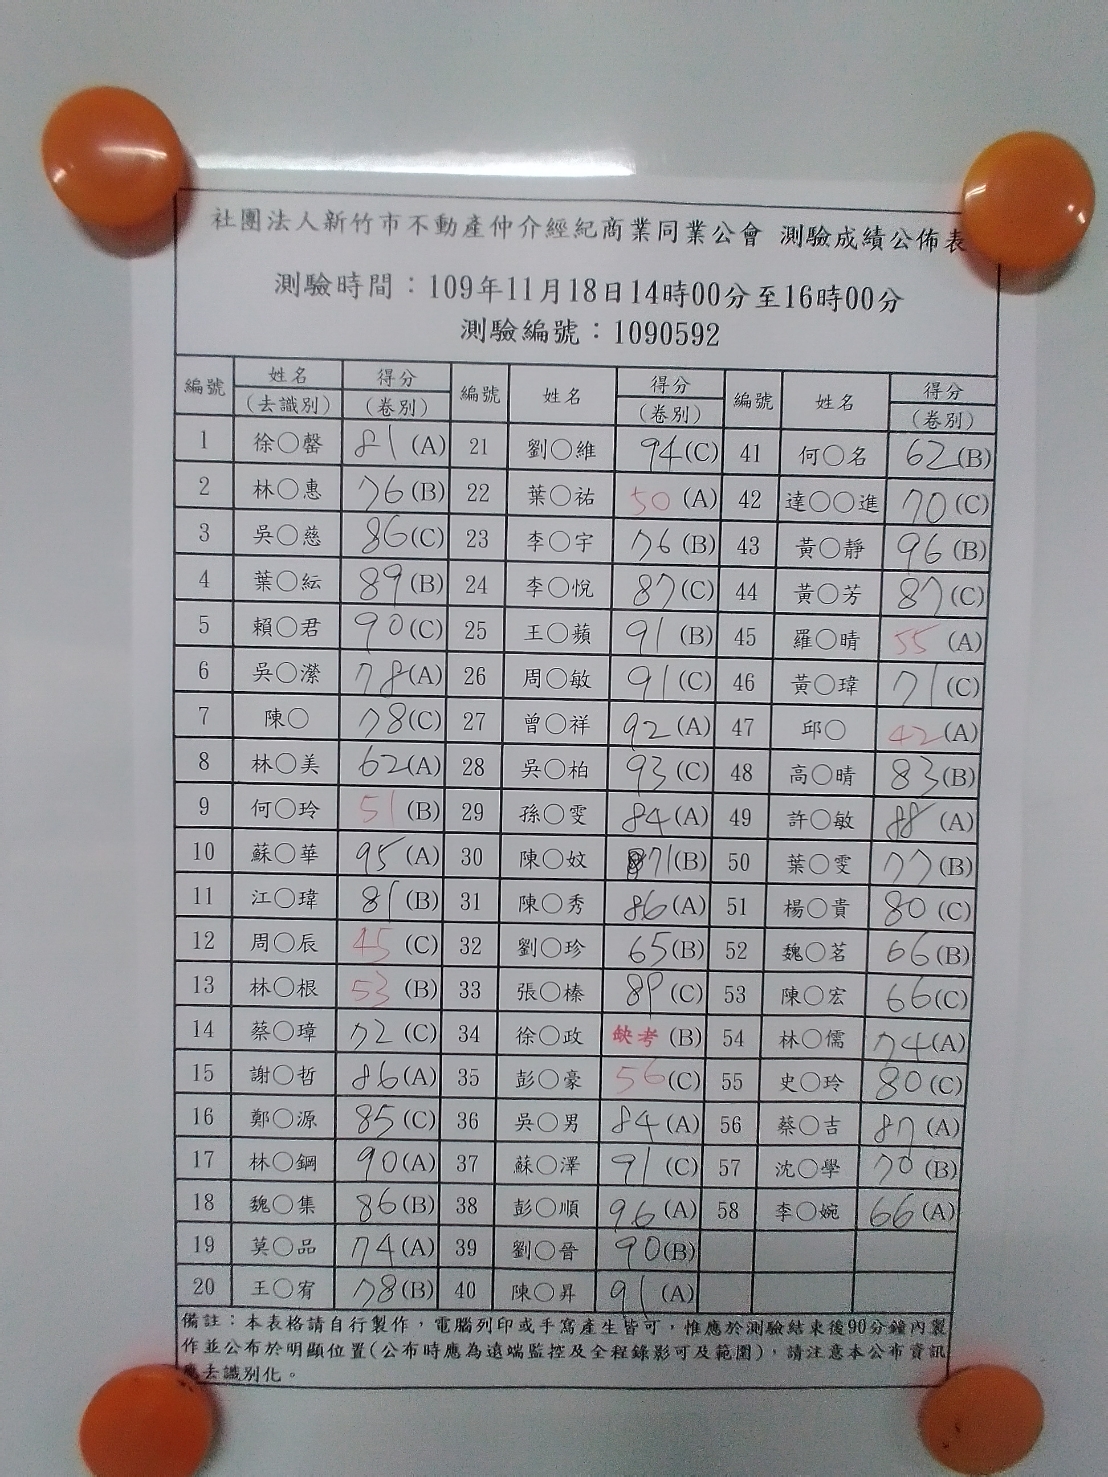 社團法人新竹市不動產仲介經紀商業同業公會 測驗成績公佈表
測驗時間：109年11月18日14時00分至16時00分
測驗編號：1090592
編號 姓名（去識別） 得分（卷別） 編號 姓名 得分（卷別） 編號 姓名 得分（卷別）
1 徐〇馨 81 (A) 21 劉〇維 94(C) 41 何〇名 62(B)
2 林〇惠 76(B) 22 葉〇祐 50 (A) 42 達〇〇進 70(C)
3 吳〇慈 86(C) 23 李〇宇 76(B) 43 黃〇靜 96(B)
4 葉〇紜 89(B) 24 李〇悅 87(C) 44 黃〇芳 87(C)
5 賴〇君 90(C) 25 王〇蘋 91(B) 45 羅〇晴 55 (A)
6 吳〇瀠 78(A) 26 周〇敏 91(C) 46 黃〇瑋 71(C)
7 陳〇 78(C) 27 曾〇祥 92(A) 47 邱〇 42(A)
8 林〇美 62(A) 28 吳〇柏 93(C) 48 高〇晴 83(B)
9 何〇玲 51 (B) 29 孫〇雯 84(A) 49 許〇敏 88 (A)
10 蘇〇華 95(A) 30 陳〇妏 71(B) 50 葉〇雯 77(B)
11 江〇瑋 81(B) 31 陳〇秀 86(A) 51 楊〇貴 80(C)
12 周〇辰 45 (C) 32 劉〇珍 65(B) 52 魏〇茗 66(B)
13 林〇根 53 (B) 33 張〇榛 89(C) 53 陳〇宏 66(C)
14 蔡〇璋 72(C) 34 徐〇政 缺考 (B) 54 林〇儒 74(A)
15 謝〇哲 86(A) 35 彭〇豪 56(C) 55 史〇玲 80(C)
16 鄭〇源 85(C) 36 吳〇男 84(A) 56 蔡〇吉 87(A)
17 林〇鋼 90(A) 37 蘇〇澤 91(C) 57 沈〇學 70(B)
18 魏〇集 86(B) 38 彭〇順 96(A) 58 李〇婉 66(A)
19 莫〇品 74(A) 39 劉〇晉 90(B)
20 王〇宥 78(B) 40 陳〇昇 91 (A)
備註：本表格請自行製作，電腦列印或手寫產生皆可，惟應於測驗結束後90分鐘內製
作並公布於明顯位置(公布時應為遠端監控及全程錄影可及範圍)，請注意本公布資訊
應去識別化。